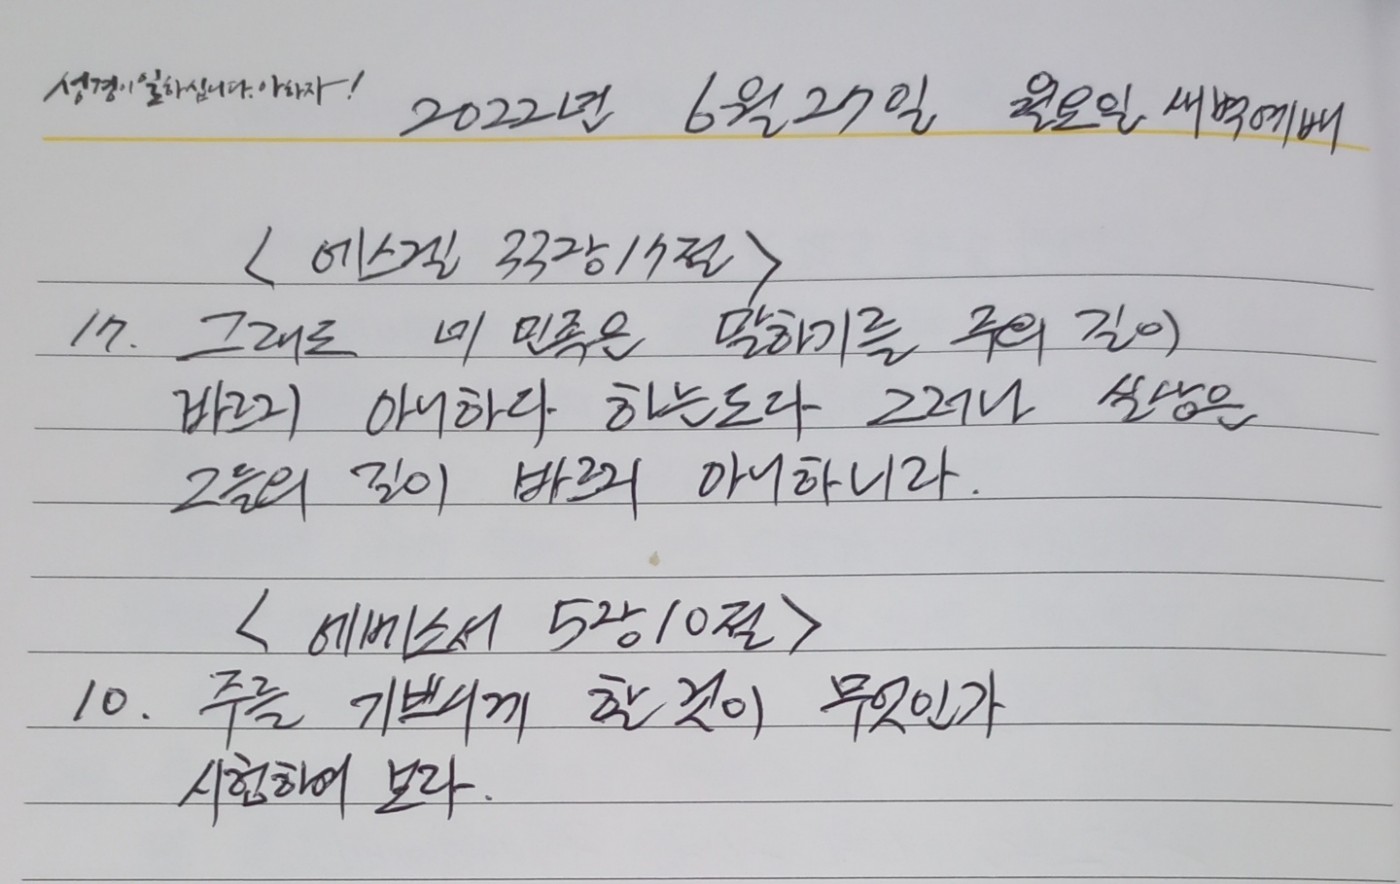 성경이 일하십니다. 아하자!
2022년 6월 27일 월요일 새벽예배
< 에스겔 33장 17절 >
17. 그래도 네 민족은 말하기를 주의 길이
바르지 아니하다 하는도다 그러나 실상은
그들의 길이 바르지 아니하니라.
< 에베소서 5장 10절 >
10. 주를 기쁘시게 할 것이 무엇인가
시험하여 보라.